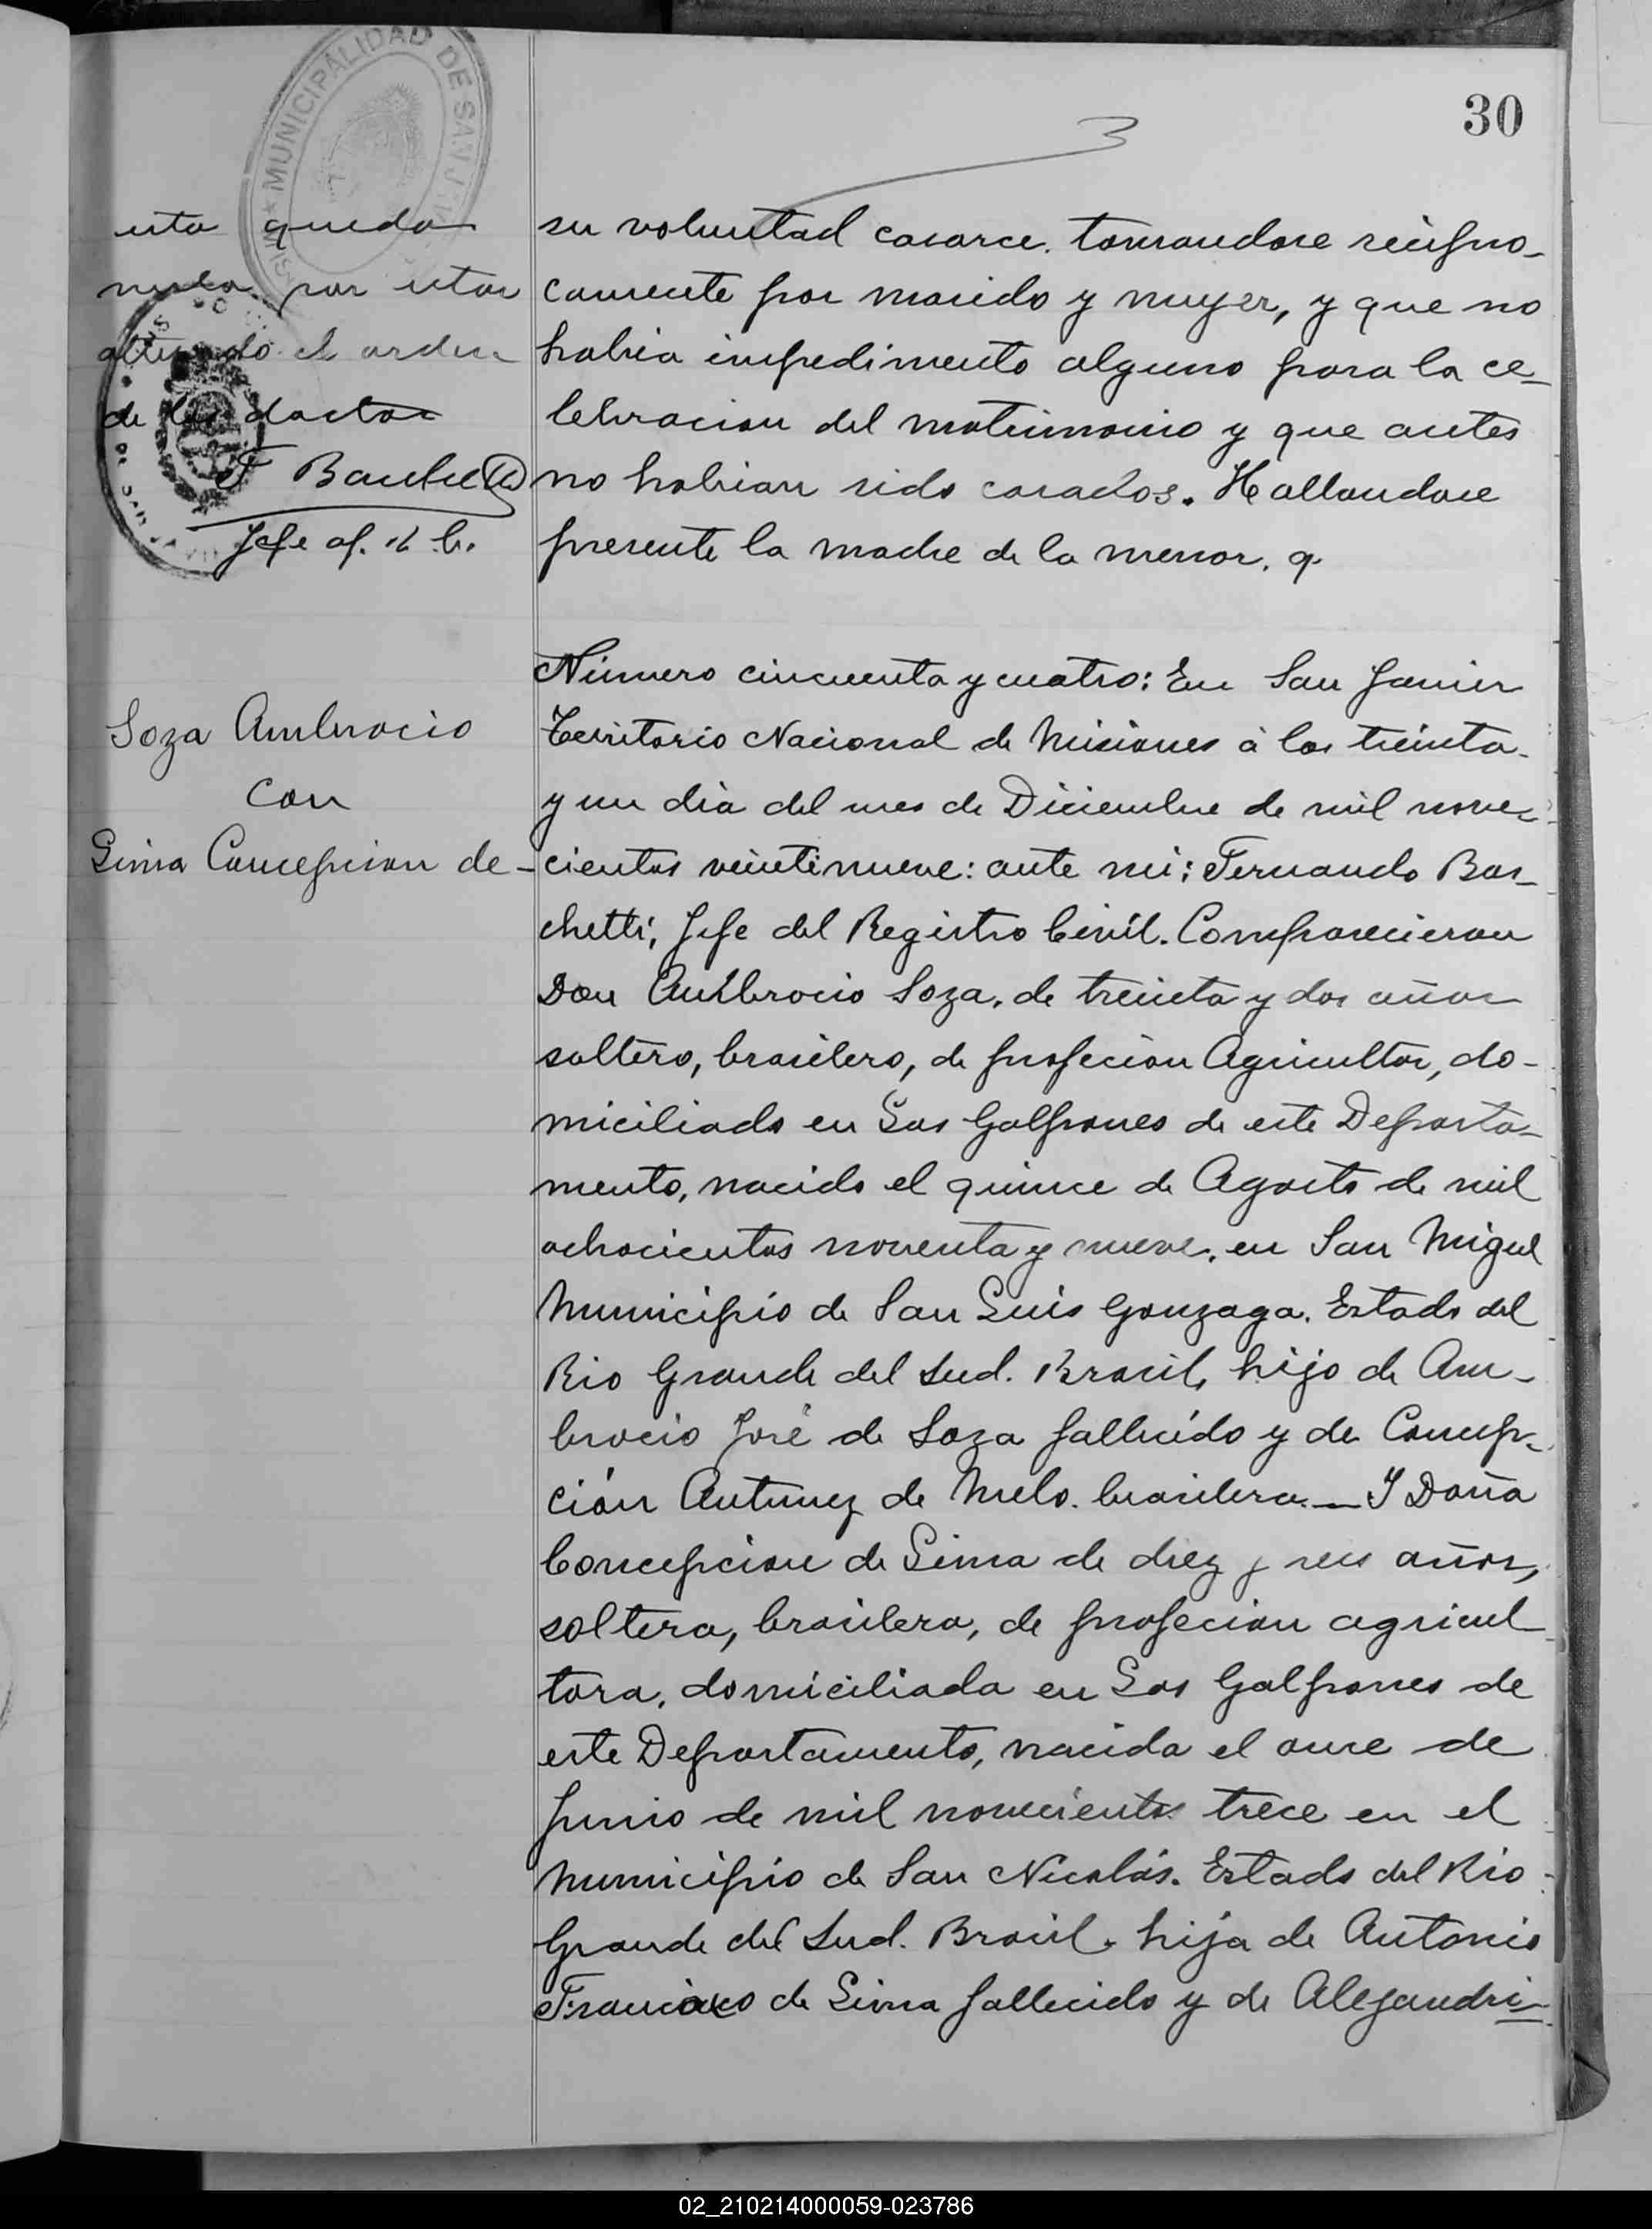 30
MUNICIPALIDAD DE SAN J
esta queda
nula por estar
alterado el orden
de los dactos
F Baschetti
Jefe of. R. C.
su voluntad casarce. tomandose resipro-
camente por marido y muyer, y que no
habia impedimento alguno para la ce-
lebracion del matrimonio y que antes
no habian sido casados. Hallandose
presente la madre de la menor. q.
Soza Ambrocio
con
Lima Concepcion de-
Número cincuenta y cuatro: En San Javier
Territorio Nacional de Misiones à los treinta
y un dia del mes de Diciembre de mil nove-
cientos veintinueve: ante mi: Fernando Bas-
chetti, Jefe del Registro Civil. Comparecieron
Don Ambrocio Soza, de treinta y dos años
soltero, brasilero, de profecion Agricultor, do-
miciliado en Los Galpones de este Departa-
mento, nacido el quince de Agosto de mil
ochocientos noventa y nueve, en San Miguel
Municipio de San Luis Gonzaga. Estado del
Rio Grande del Sud. Brasil, hijo de Am-
brocio José de Soza fallecido y de Concep-
ción Antunez de Melo. brasilera. — Y Doña
Concepcion de Lima de diez y seis años,
soltera, brasilera, de profecion agricul
tora, domiciliada en Los Galpones de
este Departamento, nacida el once de
Junio de mil novecientos trece en el
Municipio de San Nicolás. Estado del Rio
Grande del Sud. Brasil. hija de Antonio
Francisco de Lima fallecido y de Alejandri-
02_210214000059-023786